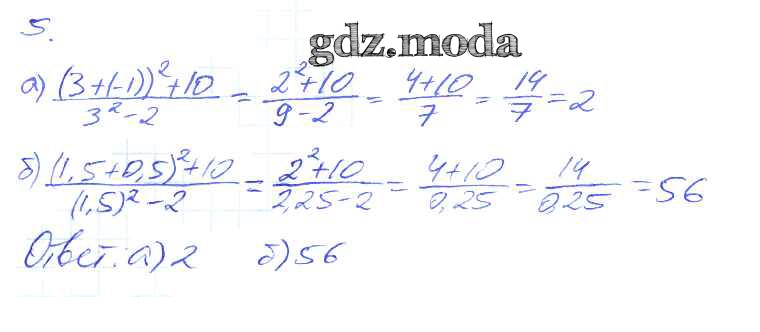 5.
gdz.moda
а) ((3+(-1))²+10)/(3²-2) = (2²+10)/(9-2) = (4+10)/7 = 14/7 = 2
б) ((1,5+0,5)²+10)/((1,5)²-2) = (2²+10)/(2,25-2) = (4+10)/0,25 = 14/0,25 = 56
Ответ: а) 2 б) 56